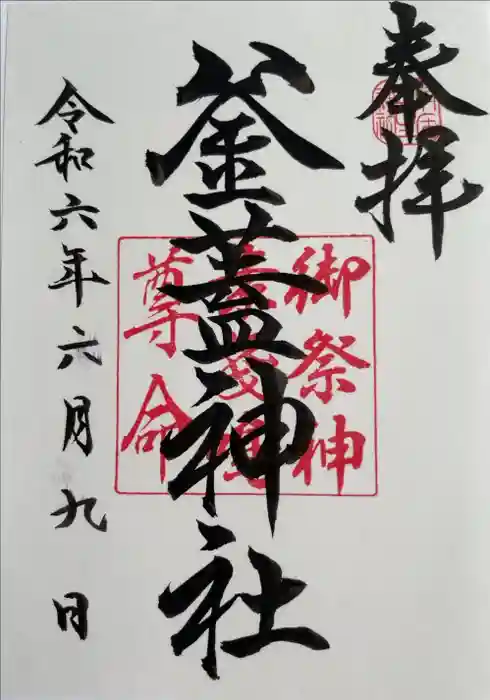 奉拝
釜蓋神社
御祭神
尊命
令和六年六月九日